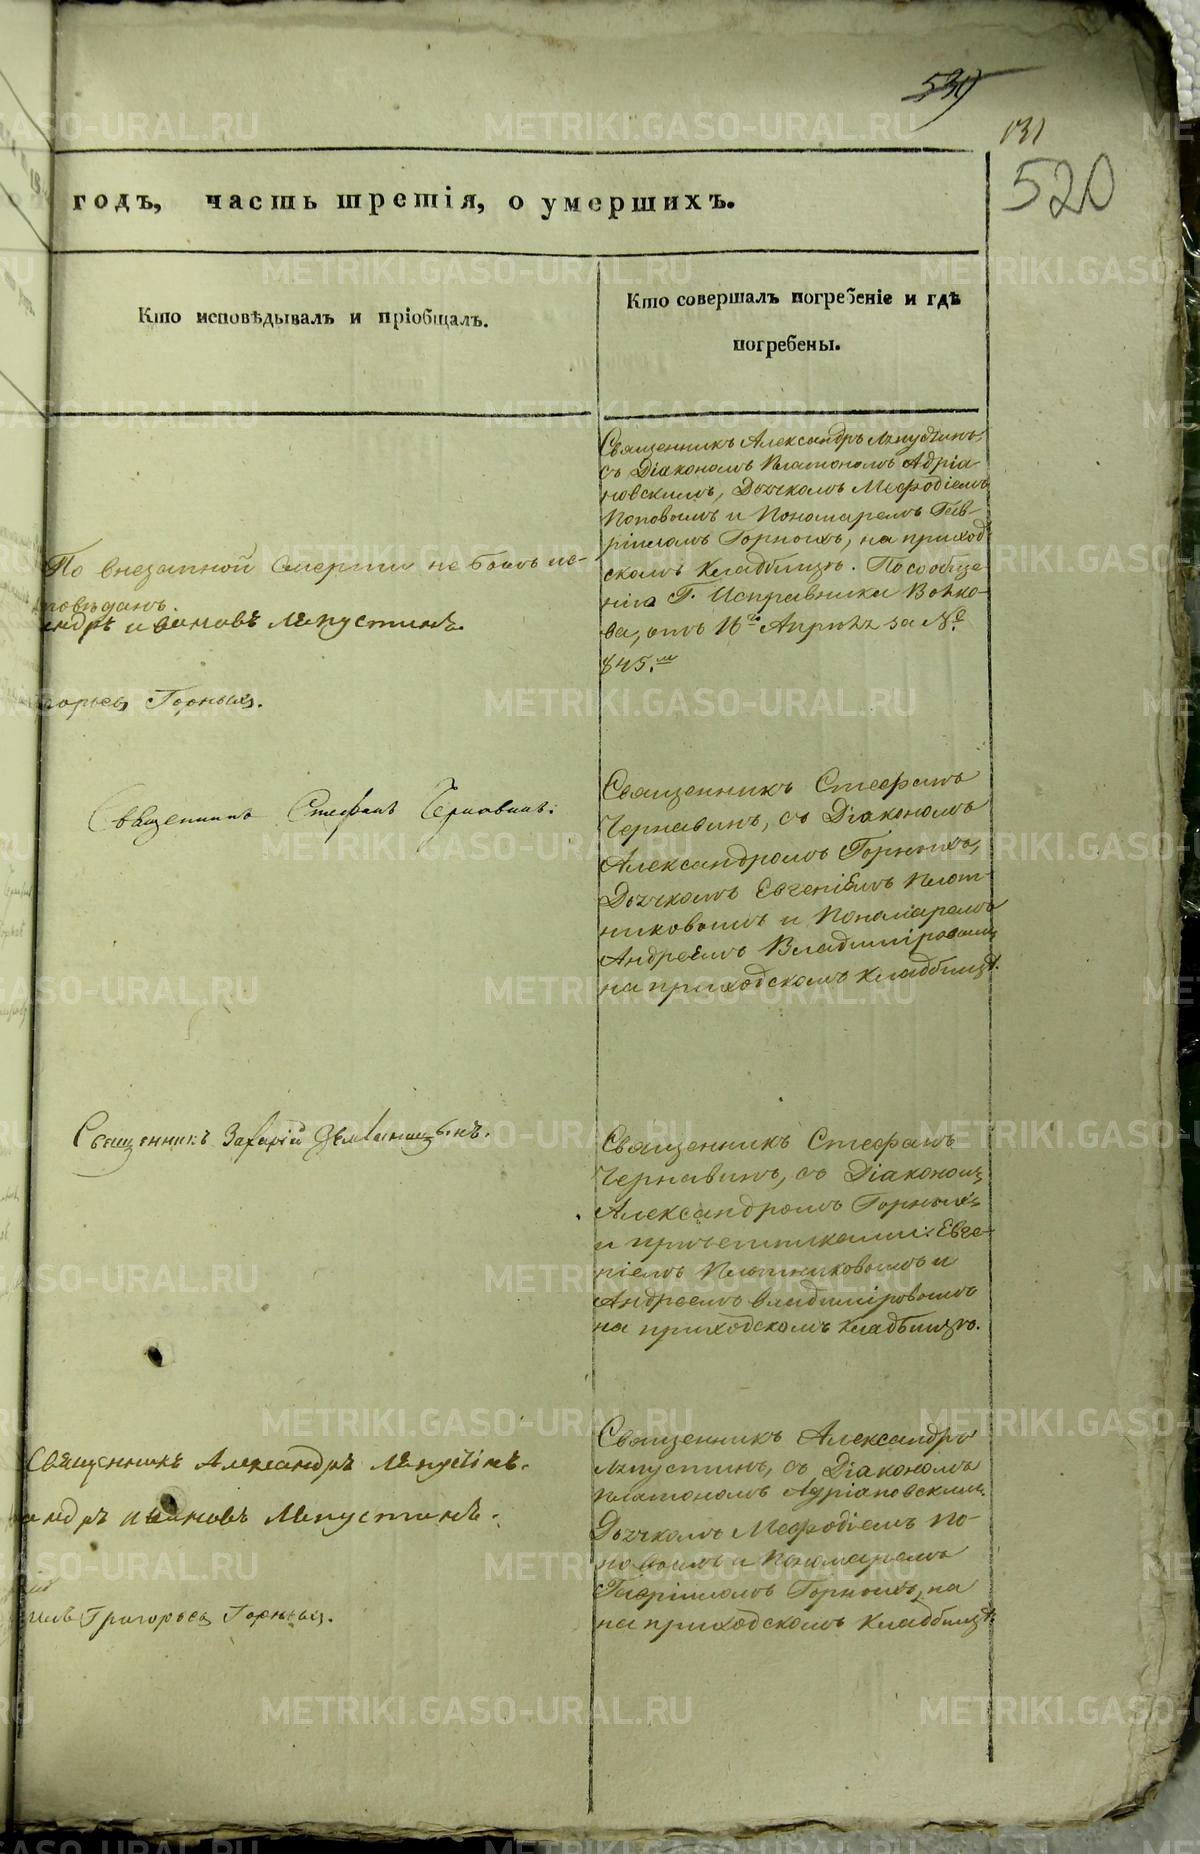 131
520
годъ, часть третія, о умершихъ.
Кто исповѣдывалъ и пріобщалъ.
Кто совершалъ погребеніе и гдѣ
погребены.
По внезапной смерти не былъ ис-
повѣданъ.
андръ Ивановъ Лапустинъ.
горьевъ Горныхъ.
Священникъ Александръ Лапустинъ,
съ Діакономъ Платономъ Адріа-
новскимъ, Дьячкомъ Меѳодіемъ
Поповымъ и Пономаремъ Гав-
ріиломъ Горныхъ, на приход-
скомъ кладбищѣ. По сообще-
нію Г. Исправника Волко-
ва, отъ 16го Апрѣля за №
845.м
Священникъ Стефанъ Чернавинъ.
Священникъ Стефанъ
Чернавинъ, съ Діакономъ
Александромъ Горныхъ,
Дьячкомъ Евгеніемъ Плот-
никовымъ и Пономаремъ
Андреемъ Владиміровымъ
на приходскомъ кладбищѣ.
Священникъ Захарій
Священникъ Стефанъ
Чернавинъ, съ Діакономъ
Александромъ Горныхъ
и причетниками: Евге-
ніемъ Плотниковымъ и
Андреемъ Владиміровымъ
на приходскомъ кладбищѣ.
Священникъ Александръ Лапустинъ.
андръ Ивановъ Лапустинъ.
илъ Григорьевъ Горныхъ.
Священникъ Александръ
Лапустинъ, съ Діакономъ
Платономъ Адріановскимъ
Дьячкомъ Меѳодіемъ По-
повымъ и Пономаремъ
Гавріиломъ Горныхъ, на
на приходскомъ кладбищѣ.
METRIKI.GASO-URAL.RU